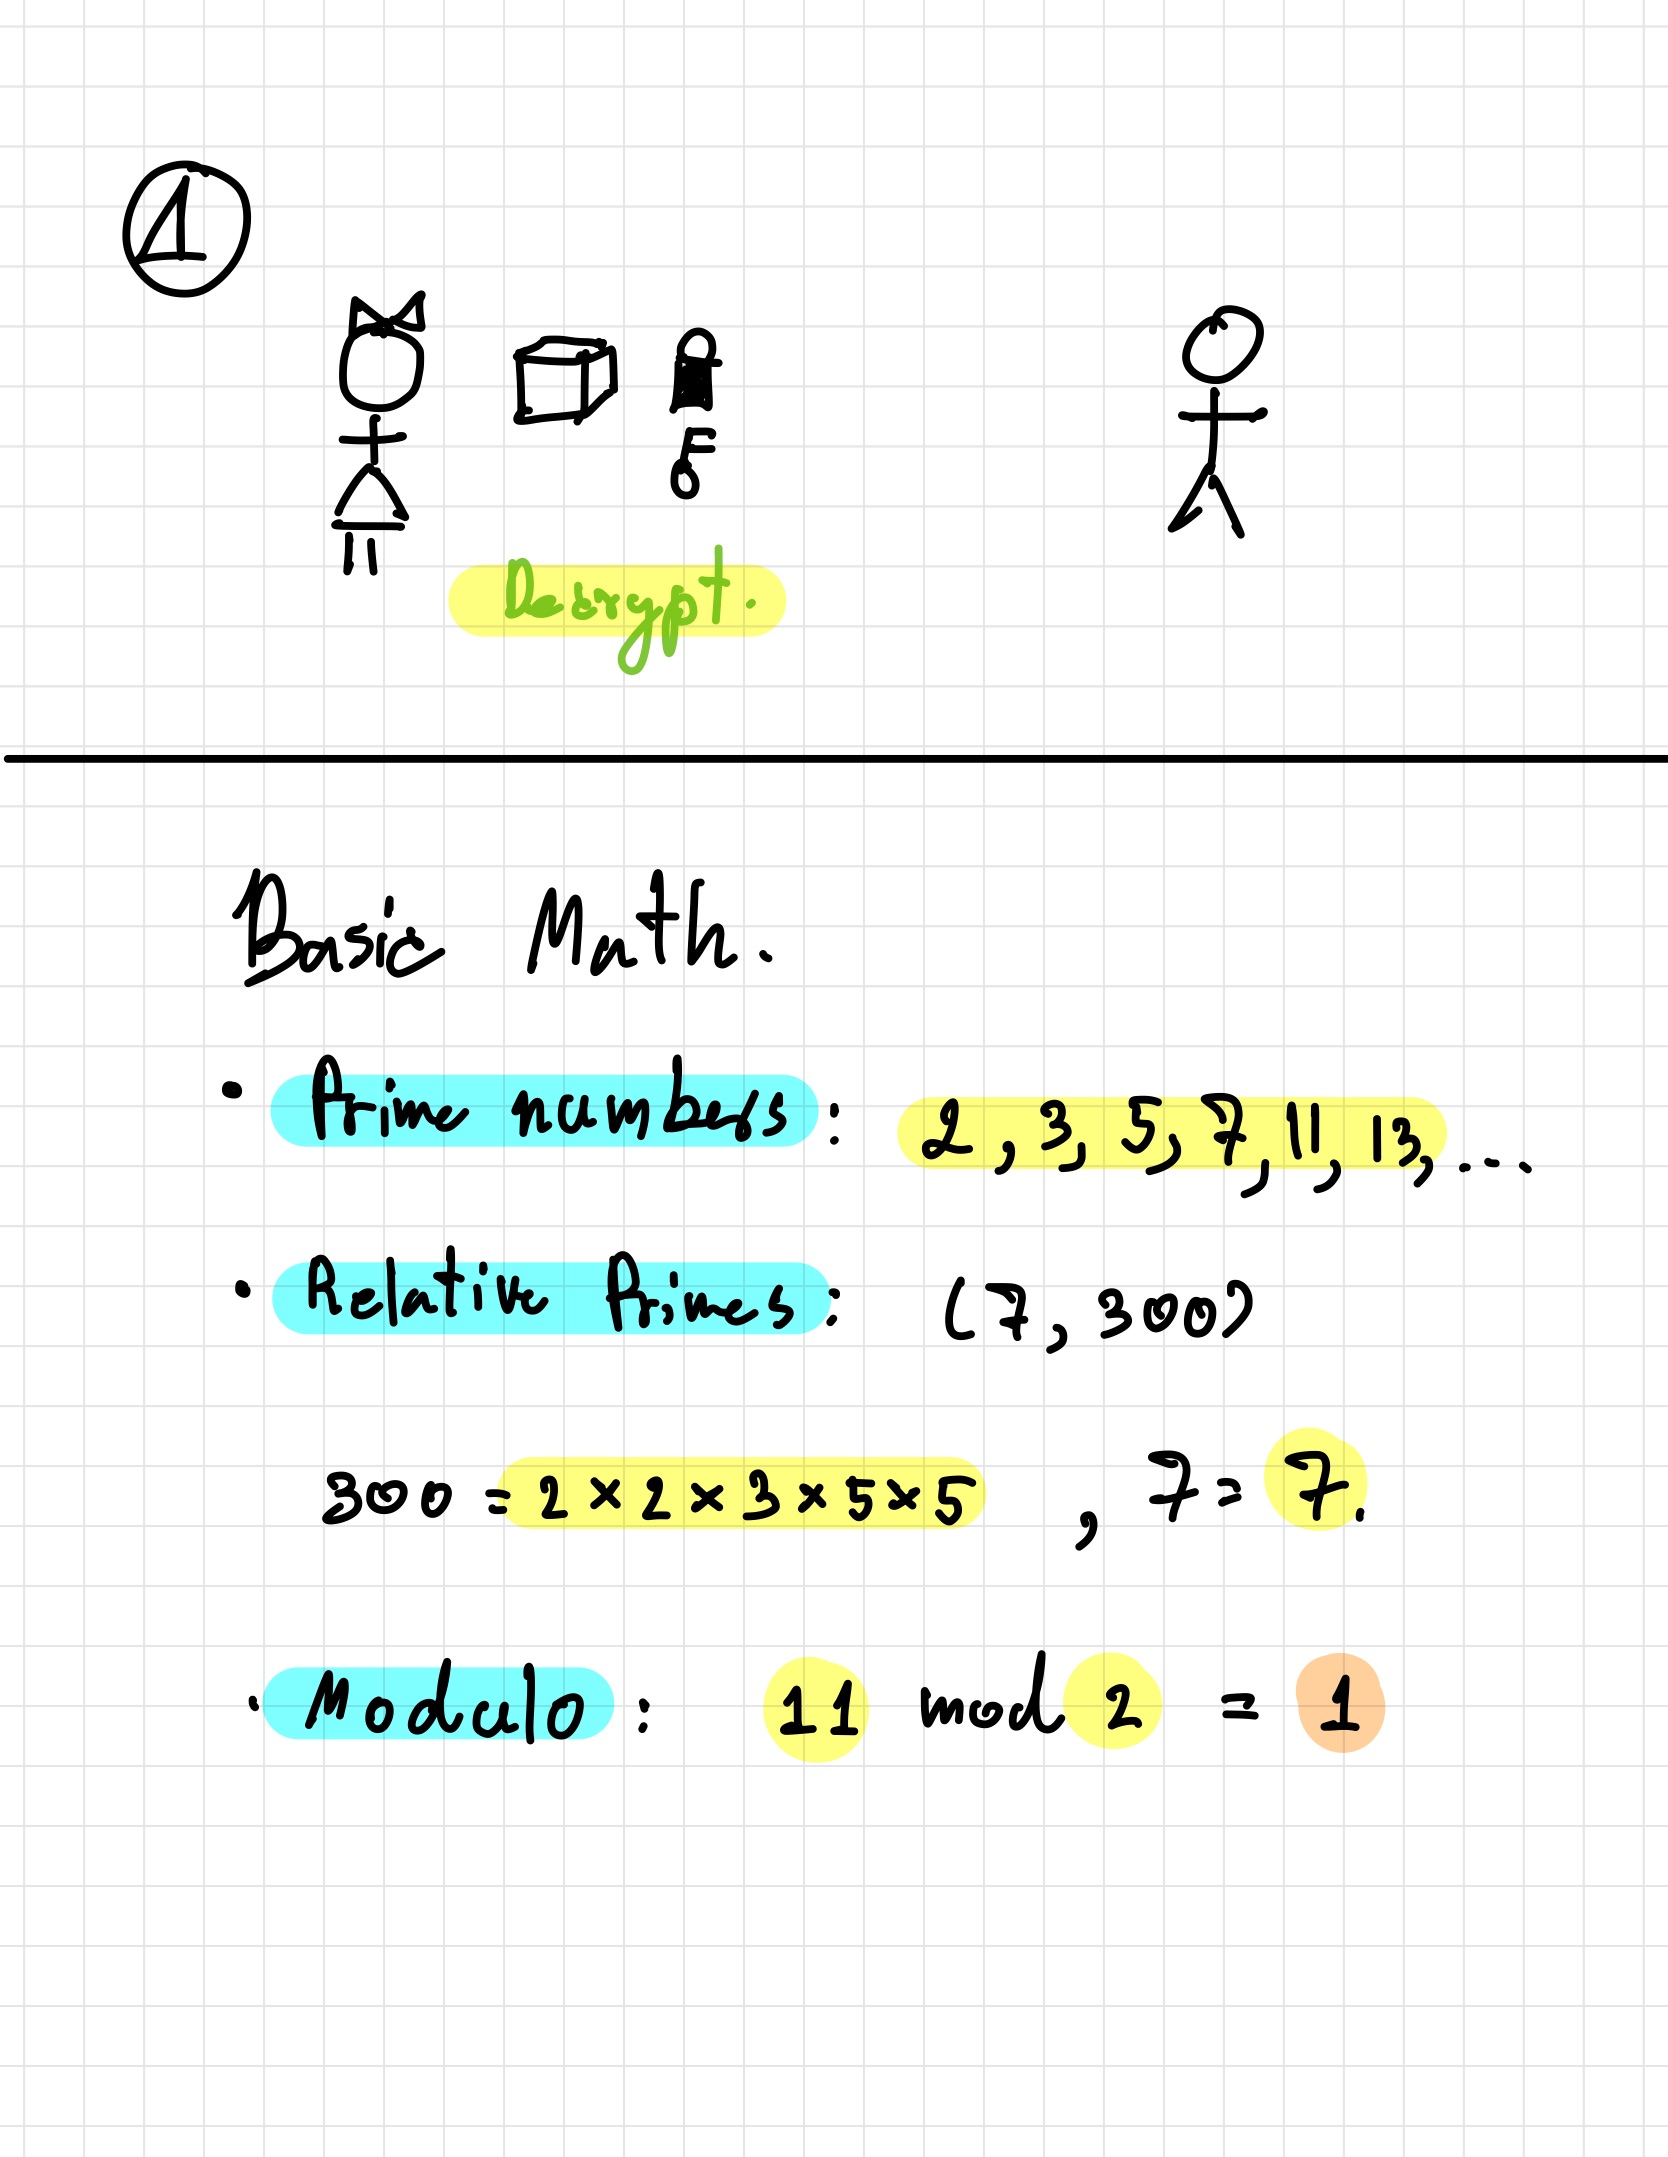 1
Decrypt.
Basic Math.
• Prime numbers: 2, 3, 5, 7, 11, 13, ...
• Relative Primes: (7, 300)
300 = 2 × 2 × 3 × 5 × 5 , 7 = 7.
• Modulo: 11 mod 2 = 1